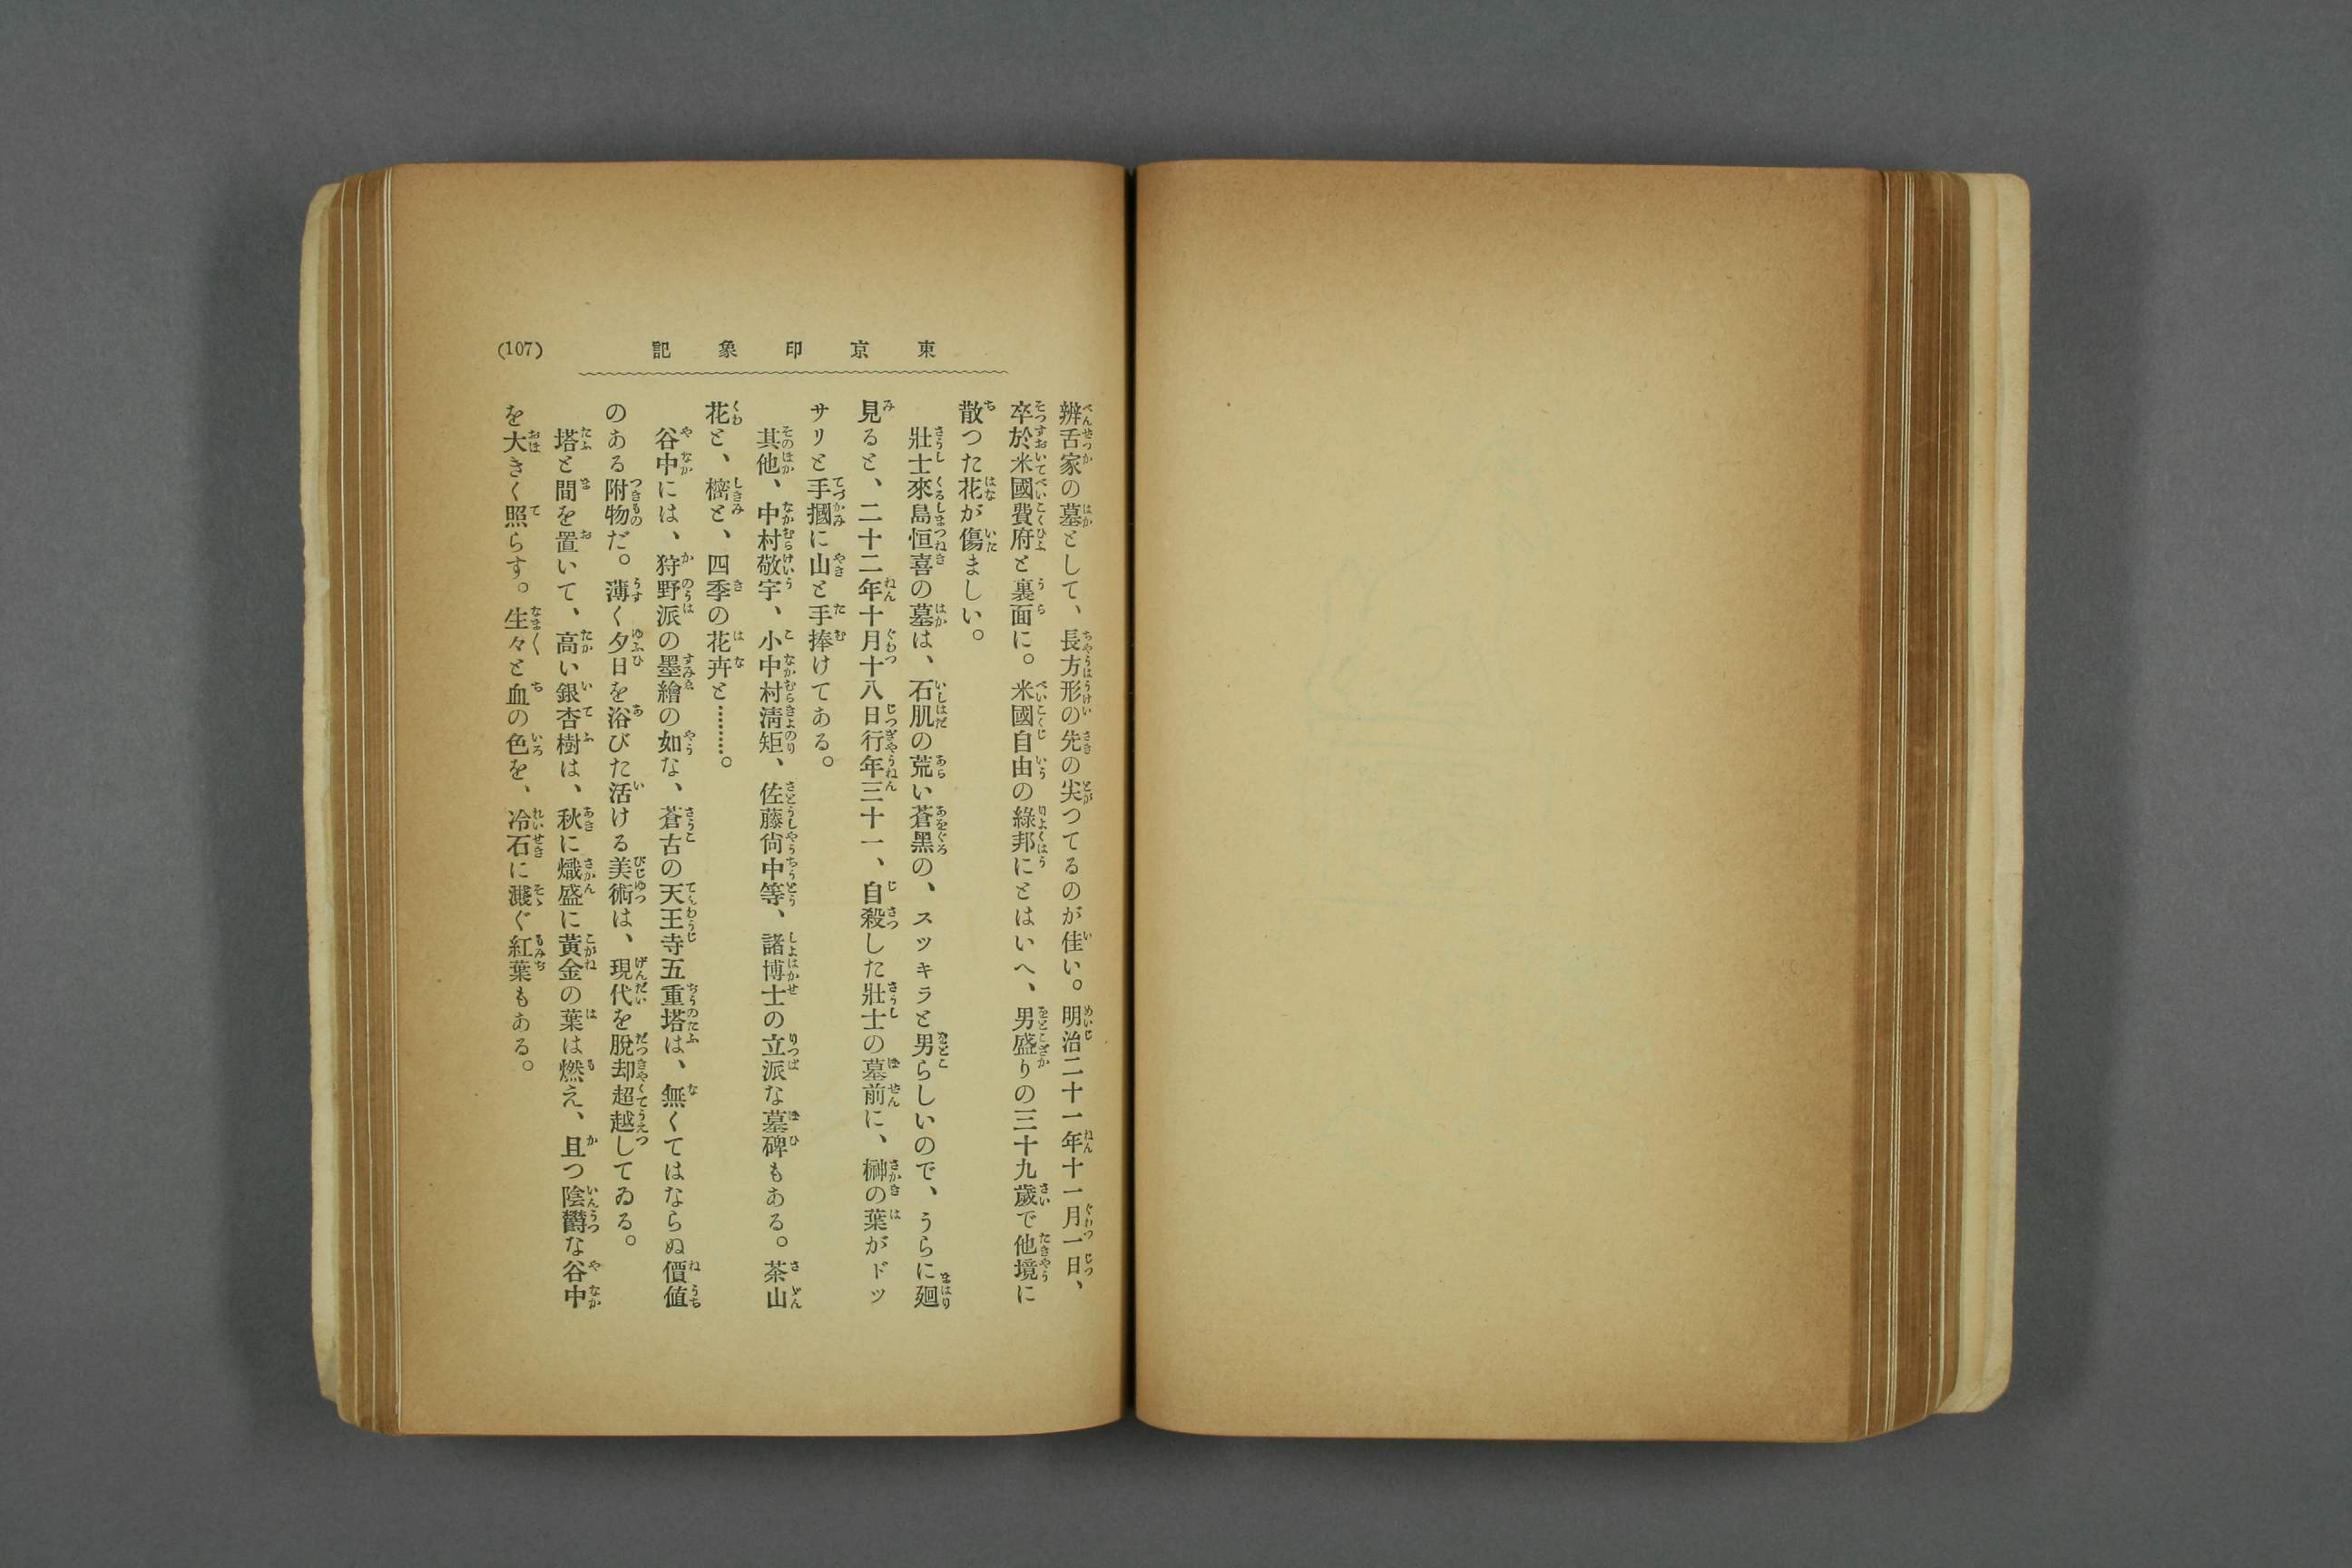 東京印象記
(107)
辨舌家の墓として、長方形の先の尖つてるのが佳い。明治二十一年十一月一日、
卒於米國費府と裏面に。米國自由の綠邦にとはいへ、男盛りの三十九歲で他境に
散つた花が傷ましい。
壯士來島恒喜の墓は、石肌の荒い蒼黑の、スッキラと男らしいので、うらに廻
見ると、二十二年十月十八日行年三十一、自殺した壯士の墓前に、榊の葉がドッ
サリと手摑に山と手捧けてある。
其他、中村敬宇、小中村淸矩、佐藤尙中等、諸博士の立派な墓碑もある。茶山
花と、樒と、四季の花卉と………。
谷中には、狩野派の墨繪の如な、蒼古の天王寺五重塔は、無くてはならぬ價値
のある附物だ。薄く夕日を浴びた活ける美術は、現代を脫却超越してゐる。
塔と間を置いて、高い銀杏樹は、秋に熾盛に黃金の葉は燃え、且つ陰欝な谷中
を大きく照らす。生々と血の色を、冷石に濺ぐ紅葉もある。